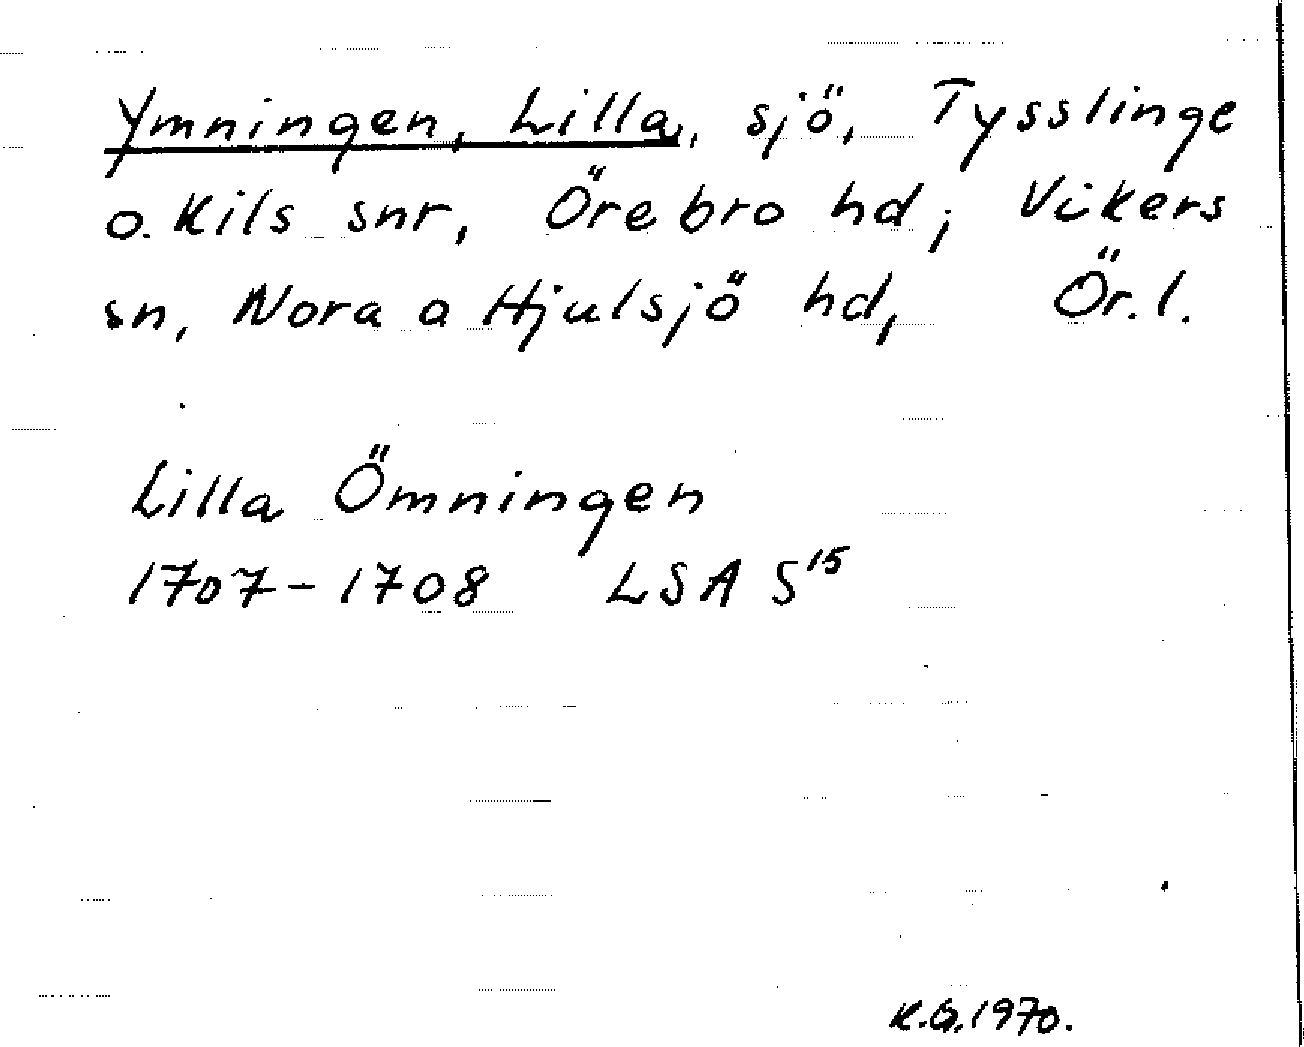 Ymningen, Lilla, sjö, Tysslinge
o. Kils snr, Örebro hd; Vikers
sn, Nora o Hjulsjö hd, Ör. l.
Lilla Ömningen
1707-1708 LSA S¹⁵
K.G. 1970.